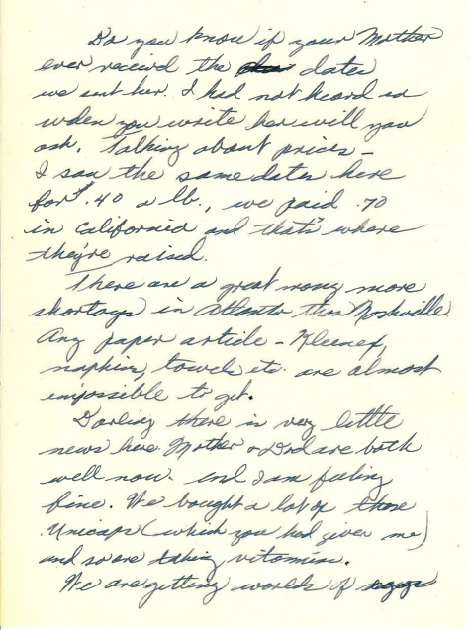 Do you know if your Mother
ever receivd the dates
we sent her. I had not heard so
when you write her will you
ask. Talking about prices –
I saw the same dates here
for $.40 a lb., we paid .70
in California and that's where
they're raised.
There are a great many more
shortages in Atlanta than Nashville.
Any paper article – Kleenex,
napkins, towels etc. are almost
impossible to get.
Darling there is very little
news here. Mother & Dad are both
well now. and I am feeling
fine. We bought a lot of those
Unicaps (which you had given me)
and so are taking vitamins.
We are getting worlds of eggs